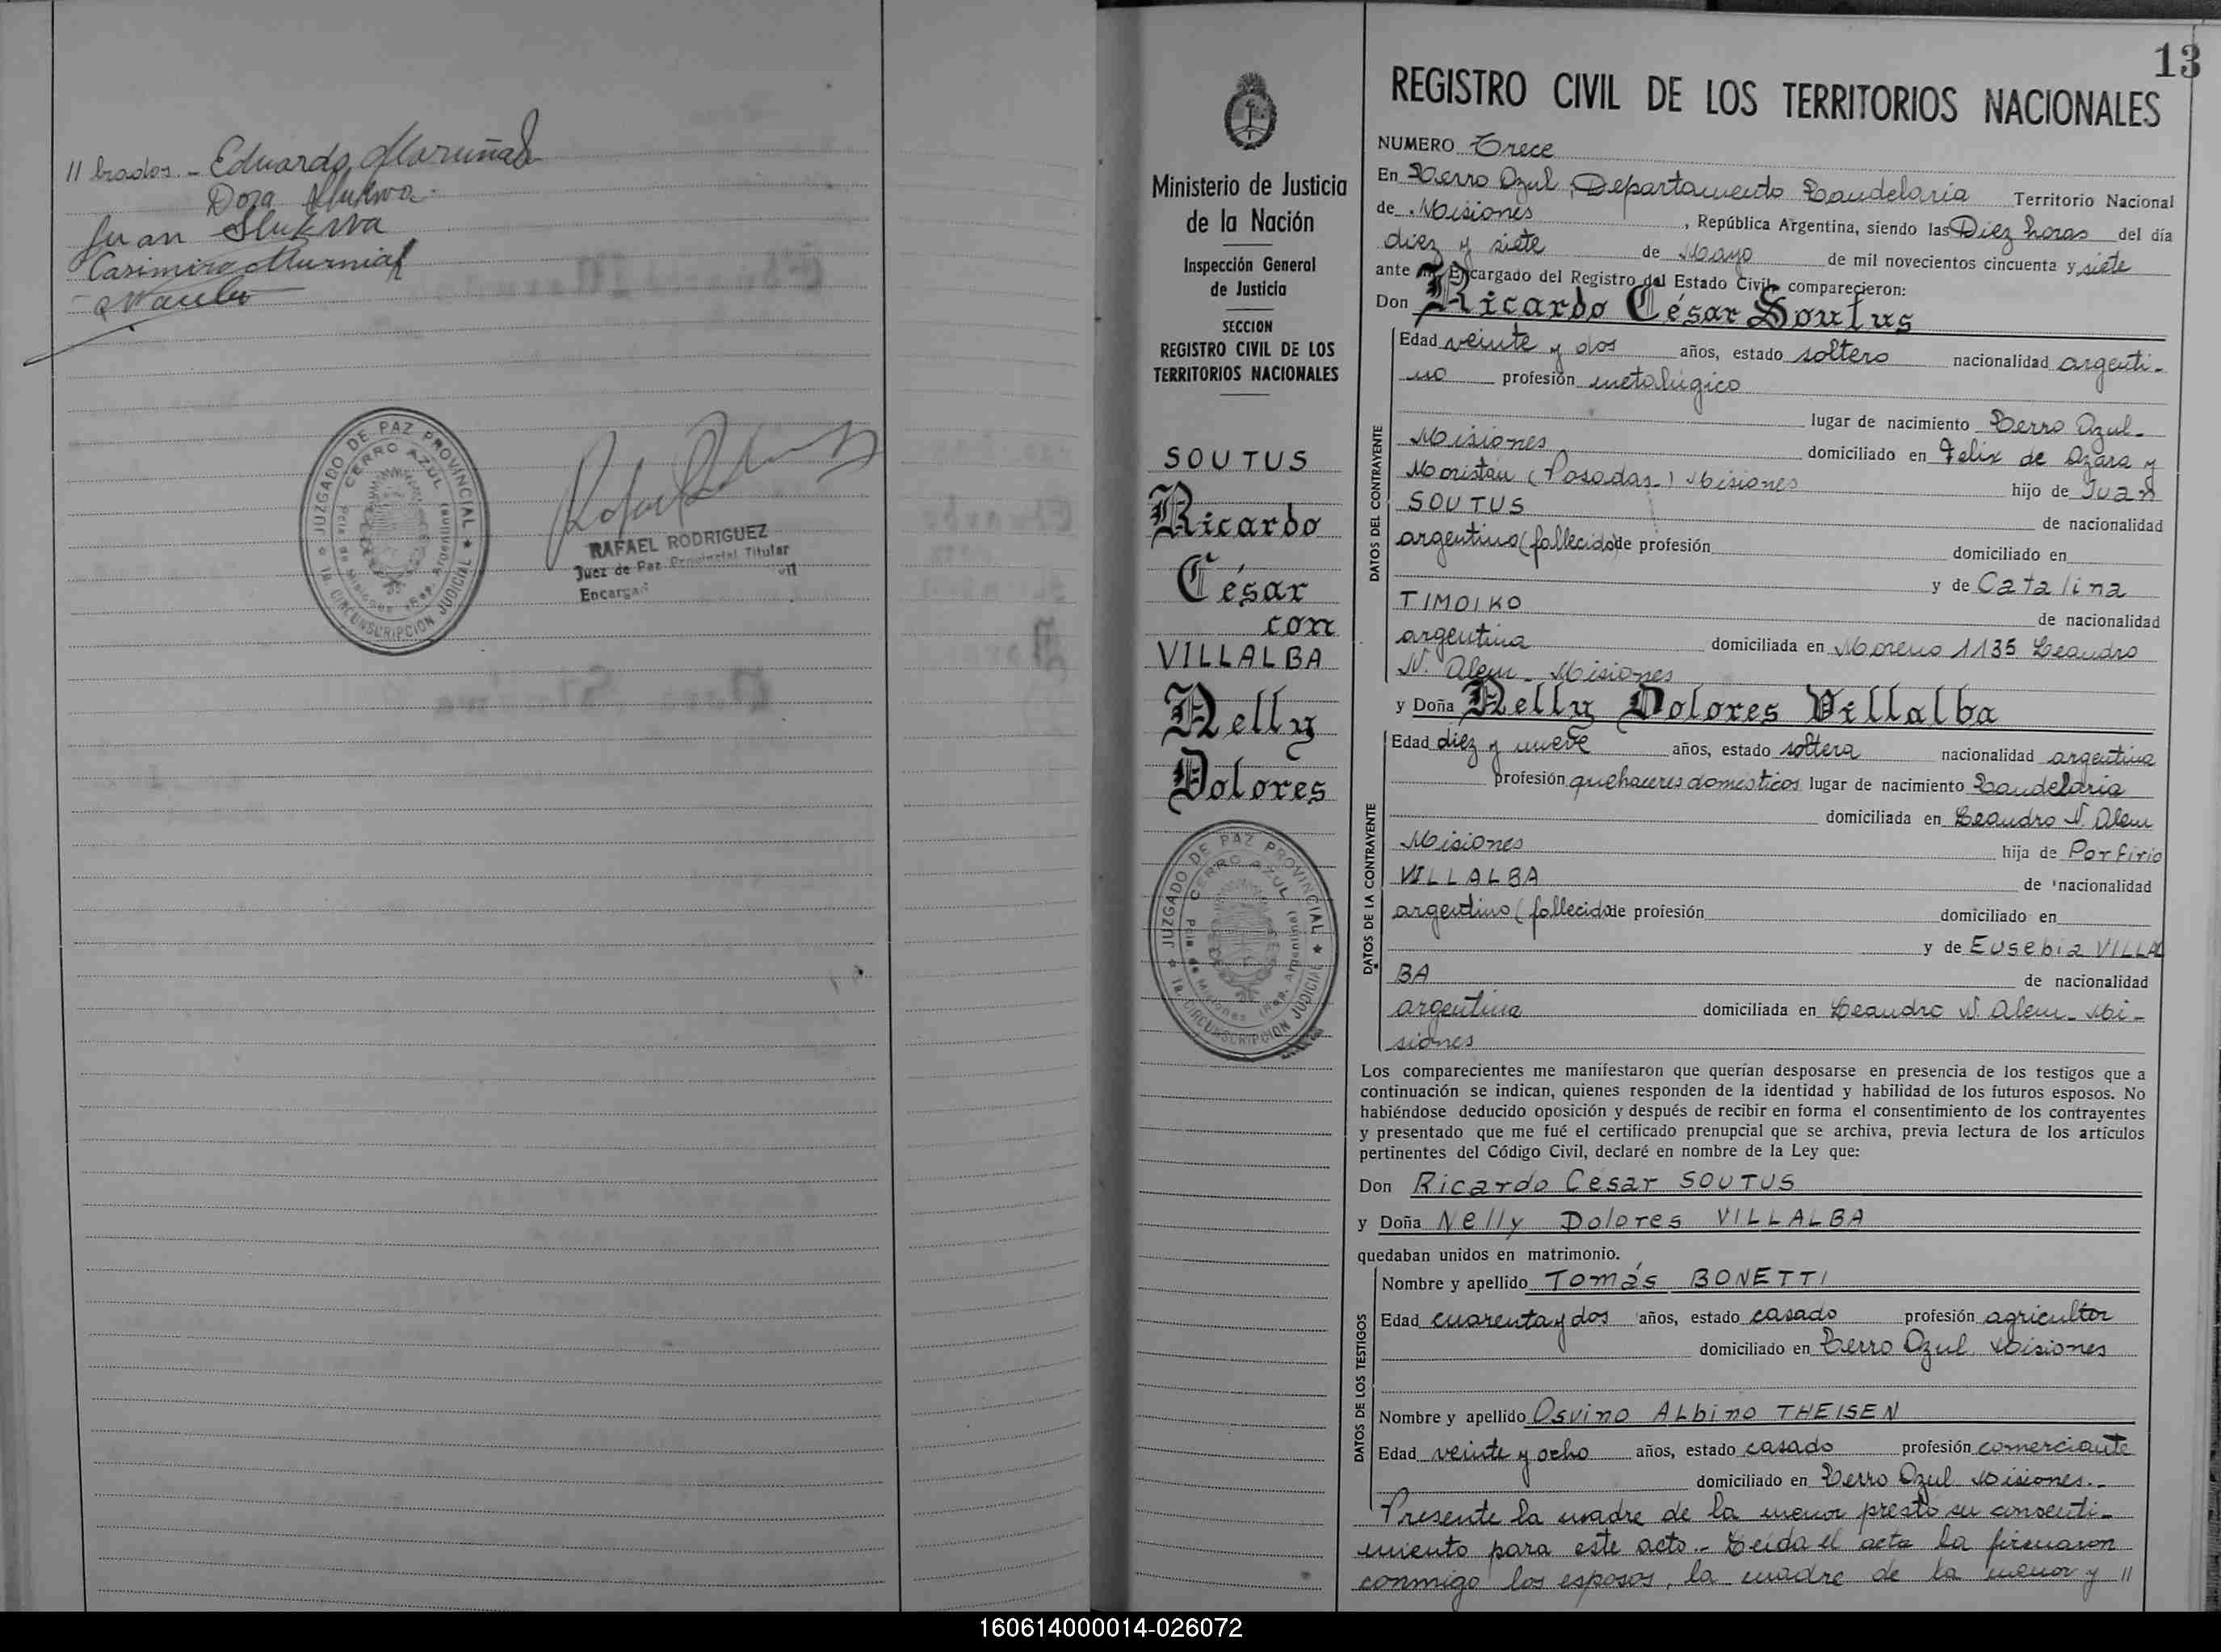 // brados. - Eduardo
Dora
Juan Slukwa
Casimiro
JUZGADO DE PAZ PROVINCIAL
CERRO AZUL
Pcia de Misiones (Rep. Argentina)
1a. CIRCUNSCRIPCION JUDICIAL
RAFAEL RODRIGUEZ
Juez de Paz Provincial Titular
Ministerio de Justicia
de la Nación
Inspección General
de Justicia
SECCION
REGISTRO CIVIL DE LOS
TERRITORIOS NACIONALES
SOUTUS
Ricardo
César
con
VILLALBA
Nelly
Dolores
JUZGADO DE PAZ PROVINCIAL
CERRO AZUL
Pcia de Misiones (Rep. Argentina)
1a. CIRCUNSCRIPCION JUDICIAL
13
REGISTRO CIVIL DE LOS TERRITORIOS NACIONALES
NUMERO Trece
En Cerro Azul, Departamento Candelaria Territorio Nacional
de Misiones, República Argentina, siendo las Diez horas del día
diez y siete de Mayo de mil novecientos cincuenta y siete
ante mi, Encargado del Registro del Estado Civil, comparecieron:
Don Ricardo César Soutus
DATOS DEL CONTRAYENTE
Edad veinte y dos años, estado soltero nacionalidad argenti-
no profesión metalúgico
lugar de nacimiento Cerro Azul-
Misiones domiciliado en Felix de Azara y
(Posadas-) Misiones hijo de Juan
SOUTUS de nacionalidad
argentino (fallecido) de profesión domiciliado en
y de Catalina
TIMOIKO de nacionalidad
argentina domiciliada en Moreno 1135 Leandro
N. Alem - Misiones
y Doña Nelly Dolores Villalba
DATOS DE LA CONTRAYENTE
Edad diez y nueve años, estado soltera nacionalidad argentina
profesión quehaceres domésticos lugar de nacimiento Candelaria
domiciliada en Leandro N. Alem
Misiones hija de Porfirio
VILLALBA de nacionalidad
argentino (fallecido) de profesión domiciliado en
y de Eusebia VILLAL
BA de nacionalidad
argentina domiciliada en Leandro N. Alem - Mi-
siones
Los comparecientes me manifestaron que querían desposarse en presencia de los testigos que a
continuación se indican, quienes responden de la identidad y habilidad de los futuros esposos. No
habiéndose deducido oposición y después de recibir en forma el consentimiento de los contrayentes
y presentado que me fué el certificado prenupcial que se archiva, previa lectura de los artículos
pertinentes del Código Civil, declaré en nombre de la Ley que:
Don Ricardo César SOUTUS
y Doña Nelly Dolores VILLALBA
quedaban unidos en matrimonio.
DATOS DE LOS TESTIGOS
Nombre y apellido Tomás BONETTI
Edad cuarenta y dos años, estado casado profesión agricultor
domiciliado en Cerro Azul, Misiones
Nombre y apellido Osvino Albino THEISEN
Edad veinte y ocho años, estado casado profesión comerciante
domiciliado en Cerro Azul Misiones.-
Presente la madre de la menor prestó su consenti-
miento para este acto.- Leída el acta la firmaron
conmigo los esposos, la madre de la menor y //
160614000014-026072